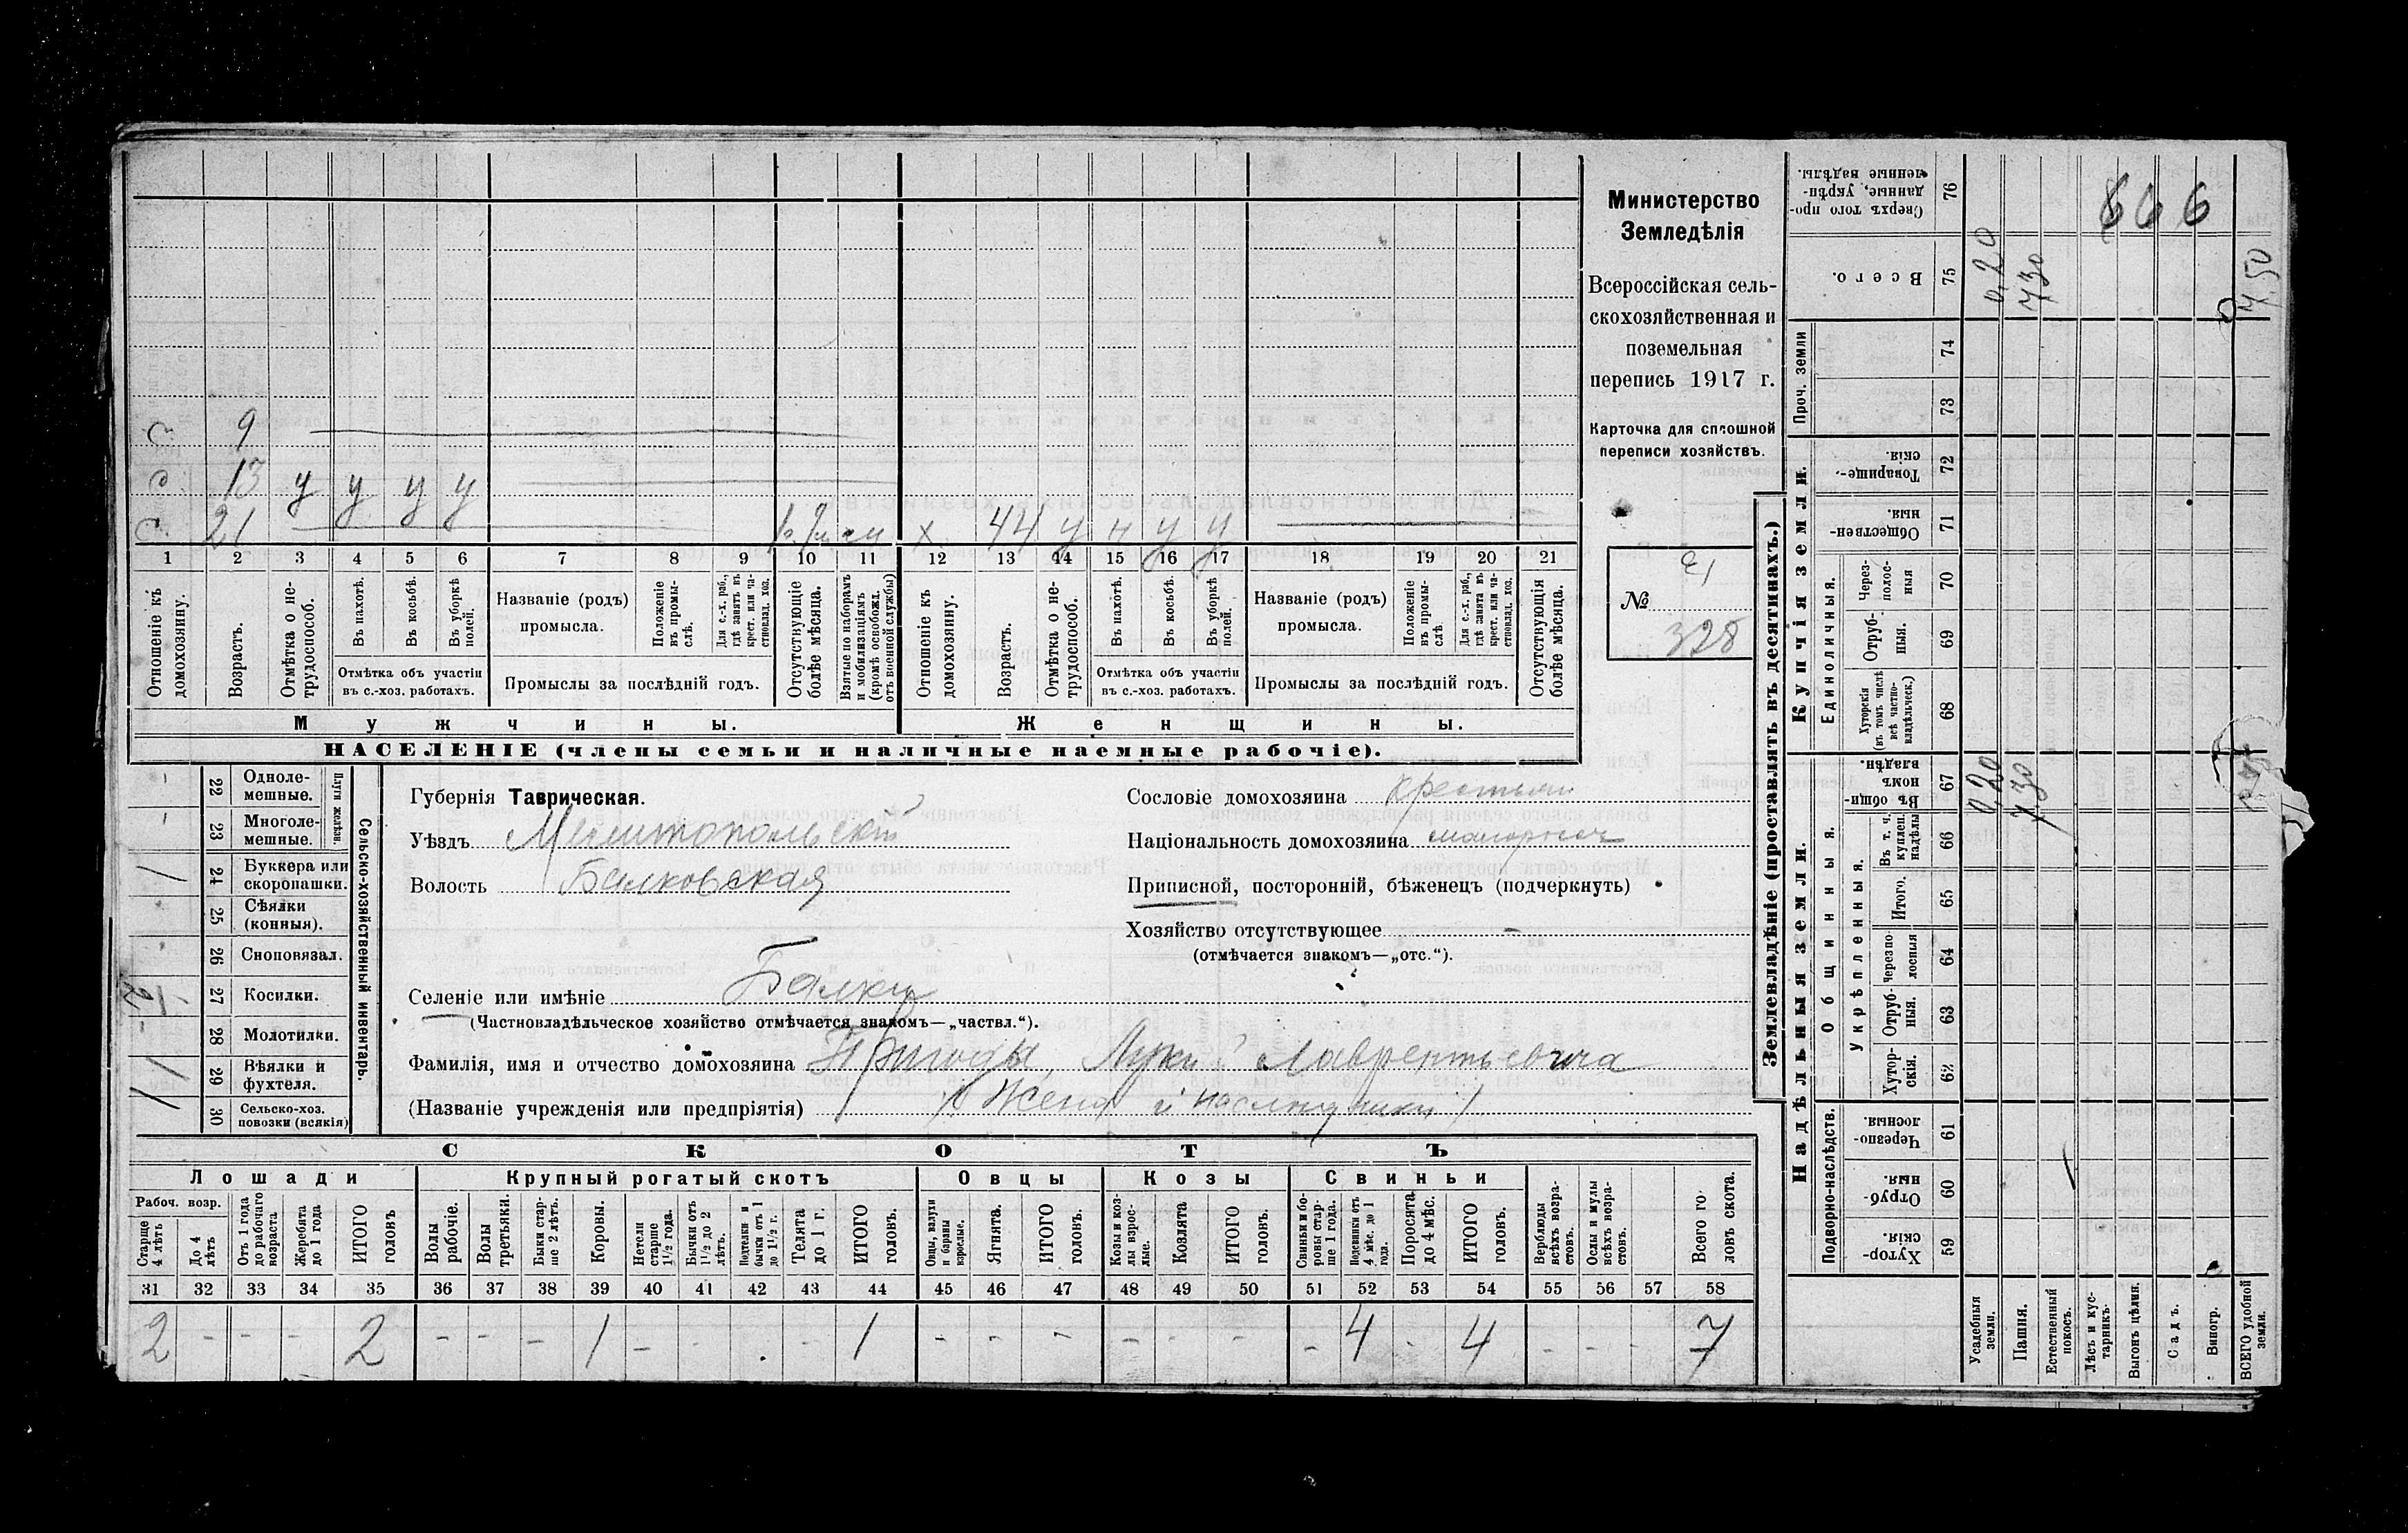 Министерство
Земледѣлія
Всероссійская сель-
скохозяйственная и
поземельная
перепись 1917 г.
Карточка для сплошной
переписи хозяйствъ.
№ 328
С. 9
С. 13 у у у у
С. 21
х 44 у н у у
1 2 3 4 5 6 7 8 9 10 11 12 13 14 15 16 17 18 19 20 21
Отношеніе къ домохозяину.
Возрастъ.
Отмѣтка о не-трудоспособ.
Въ пахотѣ.
Въ косьбѣ.
Въ уборкѣ полей.
Отмѣтка объ участіи въ с.-хоз. работахъ.
Названіе (родъ) промысла.
Положеніе въ промы-слѣ.
Для с.-х. раб., гдѣ занятъ въ крест. или ча-стновлад. хоз.
Промыслы за послѣдній годъ.
Отсутствующіе болѣе мѣсяца.
Взятые по наборамъ и мобилизаціямъ (кромѣ освобожд. отъ военной службы)
Отношеніе къ домохозяину.
Возрастъ.
Отмѣтка о не-трудоспособ.
Въ пахотѣ.
Въ косьбѣ.
Въ уборкѣ полей.
Отмѣтка объ участіи въ с.-хоз. работахъ.
Названіе (родъ) промысла.
Положеніе въ промы-слѣ.
Для с.-х. раб., гдѣ занята въ крест. или ча-стновлад. хоз.
Промыслы за послѣдній годъ.
Отсутствующія болѣе мѣсяца.
Мужчины.
Женщины.
НАСЕЛЕНІЕ (члены семьи и наличные наемные рабочіе).
Сельско-хозяйственный инвентарь.
Плуги желѣзн.
22 Одноле-мешные. -
23 Многоле-мешные. -
24 Буккера или скоропашки. 1
25 Сѣялки (конныя).
26 Сноповязал.
27 Косилки.
28 Молотилки. -
29 Вѣялки и фухтеля. 1
30 Сельско-хоз. повозки (всякія) 1
Губернія Таврическая.
Уѣздъ Мелитопольскій
Волость Балковская
Селеніе или имѣніе Балки
(Частновладѣльческое хозяйство отмѣчается знакомъ—„частвл.“).
Фамилія, имя и отчество домохозяина Пригоды, Луки Лаврентьевича
(Названіе учрежденія или предпріятія) (Жена и наслѣдники)
Сословіе домохозяина крестьян
Національность домохозяина малоросс
Приписной, посторонній, бѣженецъ (подчеркнуть)
Хозяйство отсутствующее -
(отмѣчается знакомъ—„отс.“).
СКОТЪ
Лошади
Крупный рогатый скотъ
Овцы
Козы
Свиньи
Рабоч. возр.
Старше 4 лѣтъ
До 4 лѣтъ
Отъ 1 года до рабочаго возраста
Жеребята до 1 года
ИТОГО головъ
Волы рабочіе.
Волы третьяки.
Быки стар-ше 2 лѣтъ.
Коровы.
Нетели старше 1½ года.
Бычки отъ 1½ до 2 лѣтъ.
Подтелки и бычки отъ 1 до 1½ г.
Телята до 1 г.
ИТОГО головъ.
Овцы, валухи и бараны взрослые.
Ягнята.
ИТОГО головъ.
Козы и коз-лы взрос-лые.
Козлята
ИТОГО головъ.
Свиньи и бо-ровы стар-ше 1 года.
Подсвинки отъ 4 мѣс. до 1 года.
Поросята до 4 мѣс.
ИТОГО головъ.
Верблюды всѣхъ возра-стовъ.
Ослы и мулы всѣхъ возра-стовъ.
Всего го-ловъ скота.
31 32 33 34 35 36 37 38 39 40 41 42 43 44 45 46 47 48 49 50 51 52 53 54 55 56 57 58
2 - - - 2 - - - 1 - - . - 1 - - - - - - - 4 - 4 - - - 7
Землевладѣніе (проставлять въ десятинахъ.)
Надѣльныя земли.
Купчія земли.
Проч. земли
Подворно-наслѣдств.
Общинныя.
Укрѣпленныя.
Единоличныя.
76 Сверхъ того про-данные, укрѣп-ленные надѣлы.
75 Всего. 0,20 7,30 7,50
74
73
72 Товарище-скія.
71 Обществен-ныя.
70 Через-полос-ныя
69 Отруб-ныя.
68 Хуторскія (въ томъ числѣ всѣ частно-владѣльческ.)
67 Въ общин-номъ владѣн. 0,20 7,30
66 Въ т. ч. куплен. надѣлы
65 Итого.
64 Черезпо-лосныя
63 Отруб-ныя.
62 Хутор-скія.
61 Черезпо-лосныя.
60 Отруб-ныя.
59 Хутор-скія.
Усадебныя земли.
Пашня.
Естественный покосъ.
Лѣсъ и кус-тарникъ.
Выгонъ цѣлин.
Садъ.
Виногр.
ВСЕГО удобной земли.
666